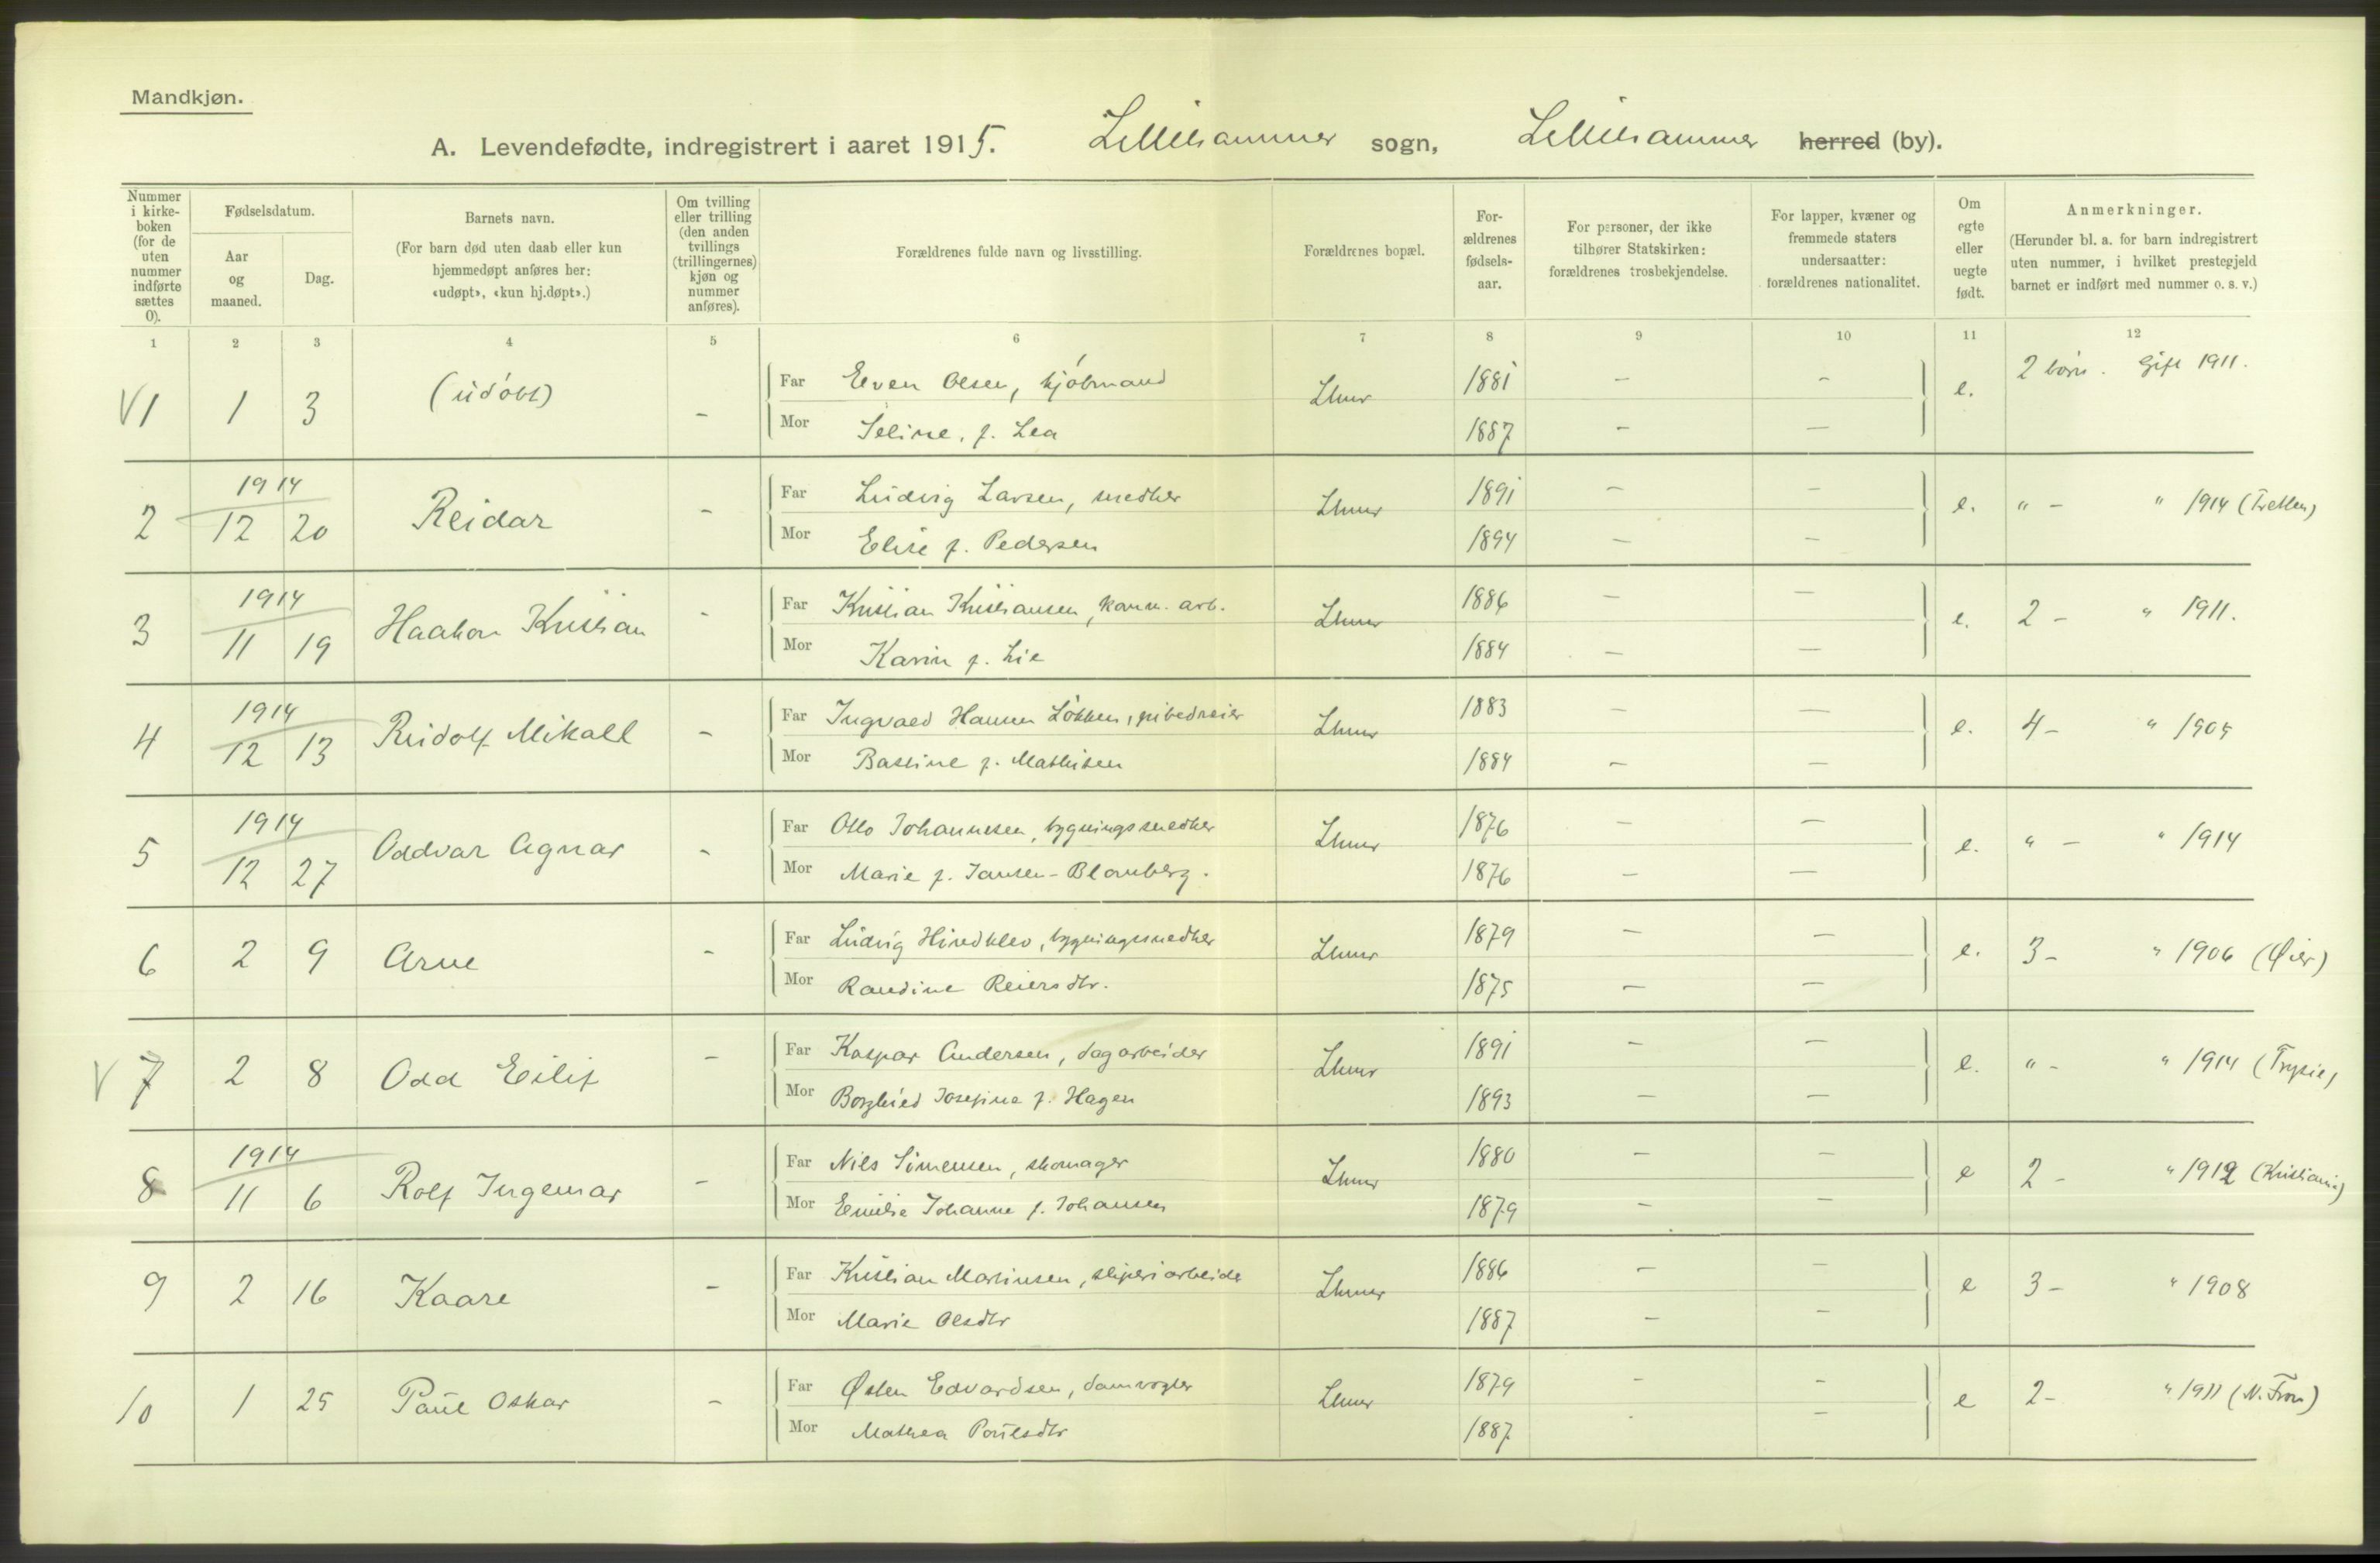 Mandkjøn.
A. Levendefødte, indregistrert i aaret 1915. Lillehammer sogn, Lillehammer herred (by).
Nummer i kirke-boken (for de uten nummer indførte sættes 0).
Fødselsdatum.
Aar og maaned.
Dag.
Barnets navn.
(For barn død uten daab eller kun hjemmedøpt anføres her: «udøpt», «kun hj.døpt».)
Om tvilling eller trilling (den anden tvillings (trillingernes) kjøn og nummer anføres).
Forældrenes fulde navn og livsstilling.
Forældrenes bopæl.
For-ældrenes fødsels-aar.
For personer, der ikke tilhører Statskirken: forældrenes trosbekjendelse.
For lapper, kvæner og fremmede staters undersaatter: forældrenes nationalitet.
Om egte eller uegte født.
Anmerkninger.
(Herunder bl. a. for barn indregistrert uten nummer, i hvilket prestegjeld barnet er indført med nummer o. s. v.)
1 2 3 4 5 6 7 8 9 10 11 12
V 1 1 3 (udøbt) - Far Even Olsen, kjøbmand Lhmr 1881 - - e. 2 børn. Gift 1911.
Mor Seline, f. Lea 1887 - -
2 1914 12 20 Reidar - Far Ludvig Larsen, snedker Lhmr 1891 - - e. " - " 1914 (Tretten)
Mor Elise f. Pedersen 1894 - -
3 1914 11 19 Haakon Kristian - Far Kristian Kristiansen, kom. arb. Lhmr 1886 - - e. 2 - " 1911.
Mor Karin f. Lie 1884 - -
4 1914 12 13 Reidolf Mikall - Far Ingvald Hansen Løkken, pibedreier Lhmr 1883 - - e. 4 - "
Mor Bastine f. Mathisen 1884 - -
5 1914 12 27 Oddvar Agnar - Far Otto Johannesen, bygningssnedker Lhmr 1876 - - e. " - " 1914
Mor Marie f. Jansen-Blomberg. 1876 - -
6 2 9 Arne - Far Ludvig Hindklev, bygningssnedker Lhmr 1879 - - e. 3 - " 1906 (Øier)
Mor Randine Reiersdtr. 1875 - -
V 7 2 8 Odd Eilif - Far Kaspar Andersen, dagarbeider Lhmr 1891 - - e. " - " 1914 (Trysil)
Mor Borghild Josefine f. Hagen 1893 - -
8 1914 11 6 Rolf Ingemar - Far Nils Simensen, skomager Lhmr 1880 - - e 2 - " 1912 (Kristiania)
Mor Emilie Johanne f. Johansen 1879 - -
9 2 16 Kaare - Far Kristian Martinsen, sliperiarbeider Lhmr 1886 - - e 3 - " 1908
Mor Marie Olsdtr 1887 - -
10 1 25 Paul Oskar - Far Østen Edvardsen, damvogter Lhmr 1879 - - e 2 - " 1911 (N. Fron)
Mor Mathea Poulsdtr 1887 -